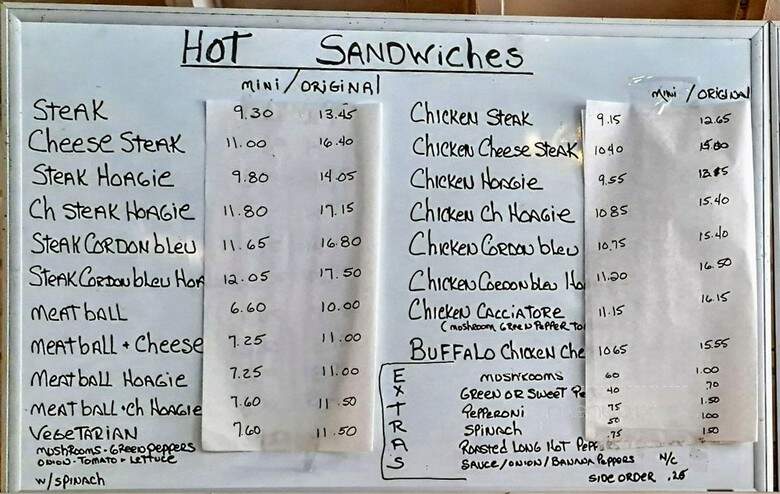 HOT SANDWICHES
MINI / ORIGINAL
STEAK 9.30 13.45
CHEESE STEAK 11.00 16.40
STEAK HOAGIE 9.80 14.05
CH STEAK HOAGIE 11.80 17.15
STEAK CORDON bleu 11.65 16.80
STEAK CORDON bleu HOA 12.05 17.50
MEATBALL 6.60 10.00
MEATBALL + CHEESE 7.25 11.00
MEATBALL HOAGIE 7.25 11.00
MEATBALL + CH HOAGIE 7.60 11.50
VEGETARIAN 7.60 11.50
MUSHROOMS - GREEN PEPPERS
ONION - TOMATO + LETTUCE
w/ SPINACH
MINI / ORIGINAL
CHICKEN STEAK 9.15 12.65
CHICKEN CHEESE STEAK 10.40
CHICKEN HOAGIE 9.55
CHICKEN CH HOAGIE 10.85 15.40
CHICKEN CORDON bleu 10.75 15.40
CHICKEN CORDON bleu HO 11.20 16.50
CHICKEN CACCIATORE 11.15 16.15
(MUSHROOM GREEN PEPPER TO
BUFFALO CHICKEN CHE 10.65 15.55
EXTRAS
MUSHROOMS 60 1.00
GREEN OR SWEET PE 40 .70
PEPPERONI 75 1.50
SPINACH 50 1.00
ROASTED LONG HOT PEPP .75 1.50
SAUCE/ONION/BANANA PEPPERS N/C
SIDE ORDER .25